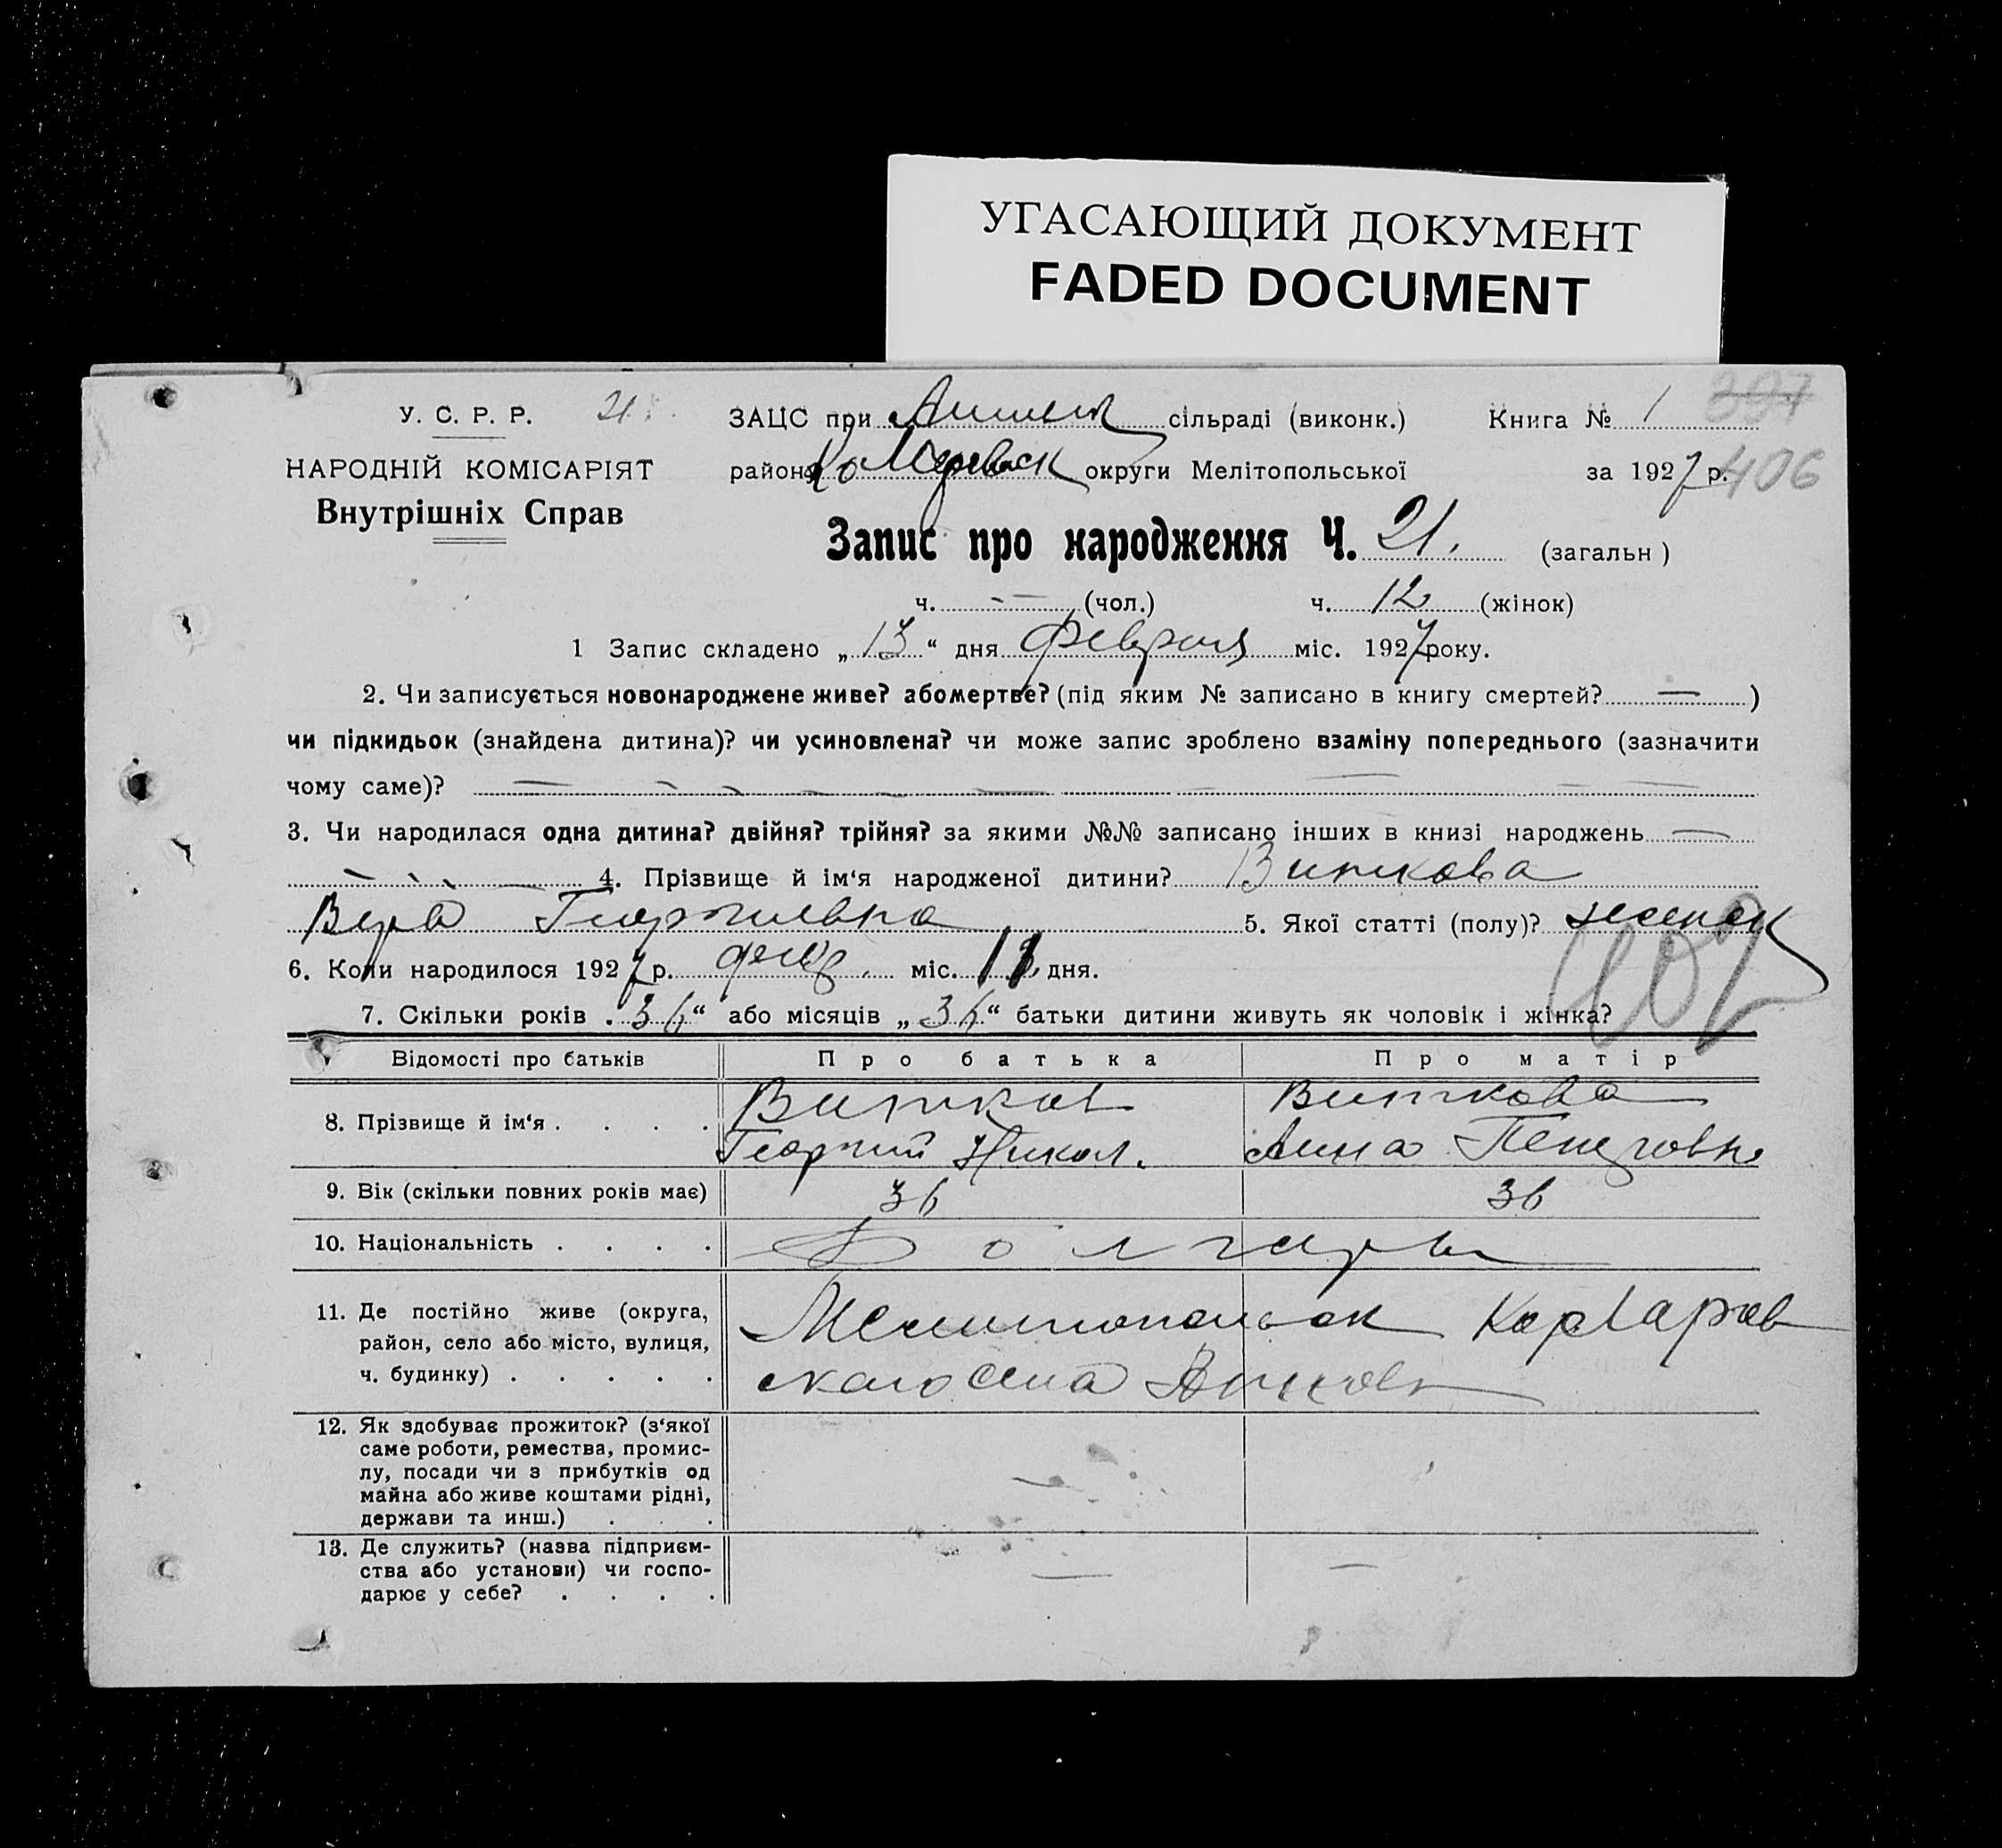 УГАСАЮЩИЙ ДОКУМЕНТ
FADED DOCUMENT
У. С. Р. Р. 21.
НАРОДНІЙ КОМІСАРІЯТ
Внутрішніх Справ
ЗАЦС при сільраді (виконк.) Книга № 1
району округи Мелітопольської за 1927 р. 406
Запис про народження Ч. 21. (загальн)
ч. — (чол.) ч. 12 (жінок)
1 Запис складено „13“ дня февраля міс. 1927 року.
2. Чи записується новонароджене живе? абомертве? (під яким № записано в книгу смертей? — )
чи підкидьок (знайдена дитина)? чи усиновлена? чи може запис зроблено взаміну попереднього (зазначити
чому саме)?
3. Чи народилася одна дитина? двійня? трійня? за якими №№ записано інших в книзі народжень —
4. Прізвище й ім‘я народженої дитини? Виткова
Вера Георгиевна 5. Якої статті (полу)? женск
6. Коли народилося 1927 р. февр. міс. дня.
7. Скільки років „36“ або місяців „36“ батьки дитини живуть як чоловік і жінка?
Відомості про батьків Про батька Про матір
8. Прізвище й ім‘я . . . . Витков Виткова
Георгий Никол. Анна Петровна
9. Вік (скільки повних років має) 36 36
10. Національність . . . . Болгары
11. Де постійно живе (округа, район, село або місто, вулиця, ч. будинку) . . . . . Мелитопольск
ского села
12. Як здобуває прожиток? (з‘якої
саме роботи, ремества, промис-
лу, посади чи з прибутків од
майна або живе коштами рідні,
держави та инш.) . . .
13. Де служить? (назва підприєм-
ства або установи) чи госпо-
дарює у себе? . . . . — —